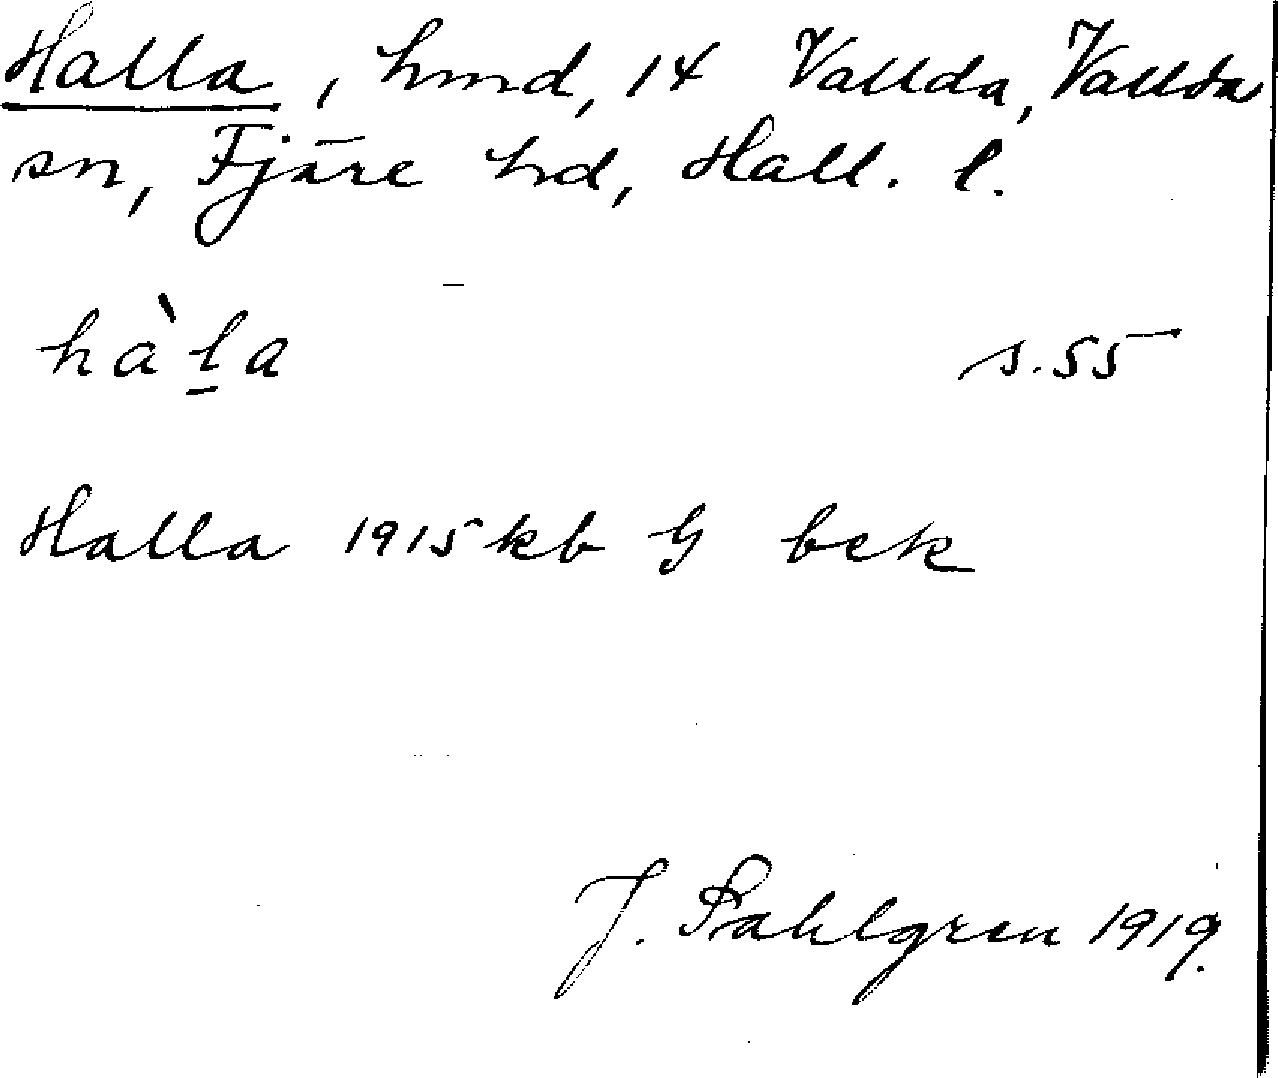 Halla, hmd, 14 Vallda, Vallda
sn, Fjäre hd, Hall. l.
hàl̲a s.55
Halla 1915 kb G bek
J. Sahlgren 1919.